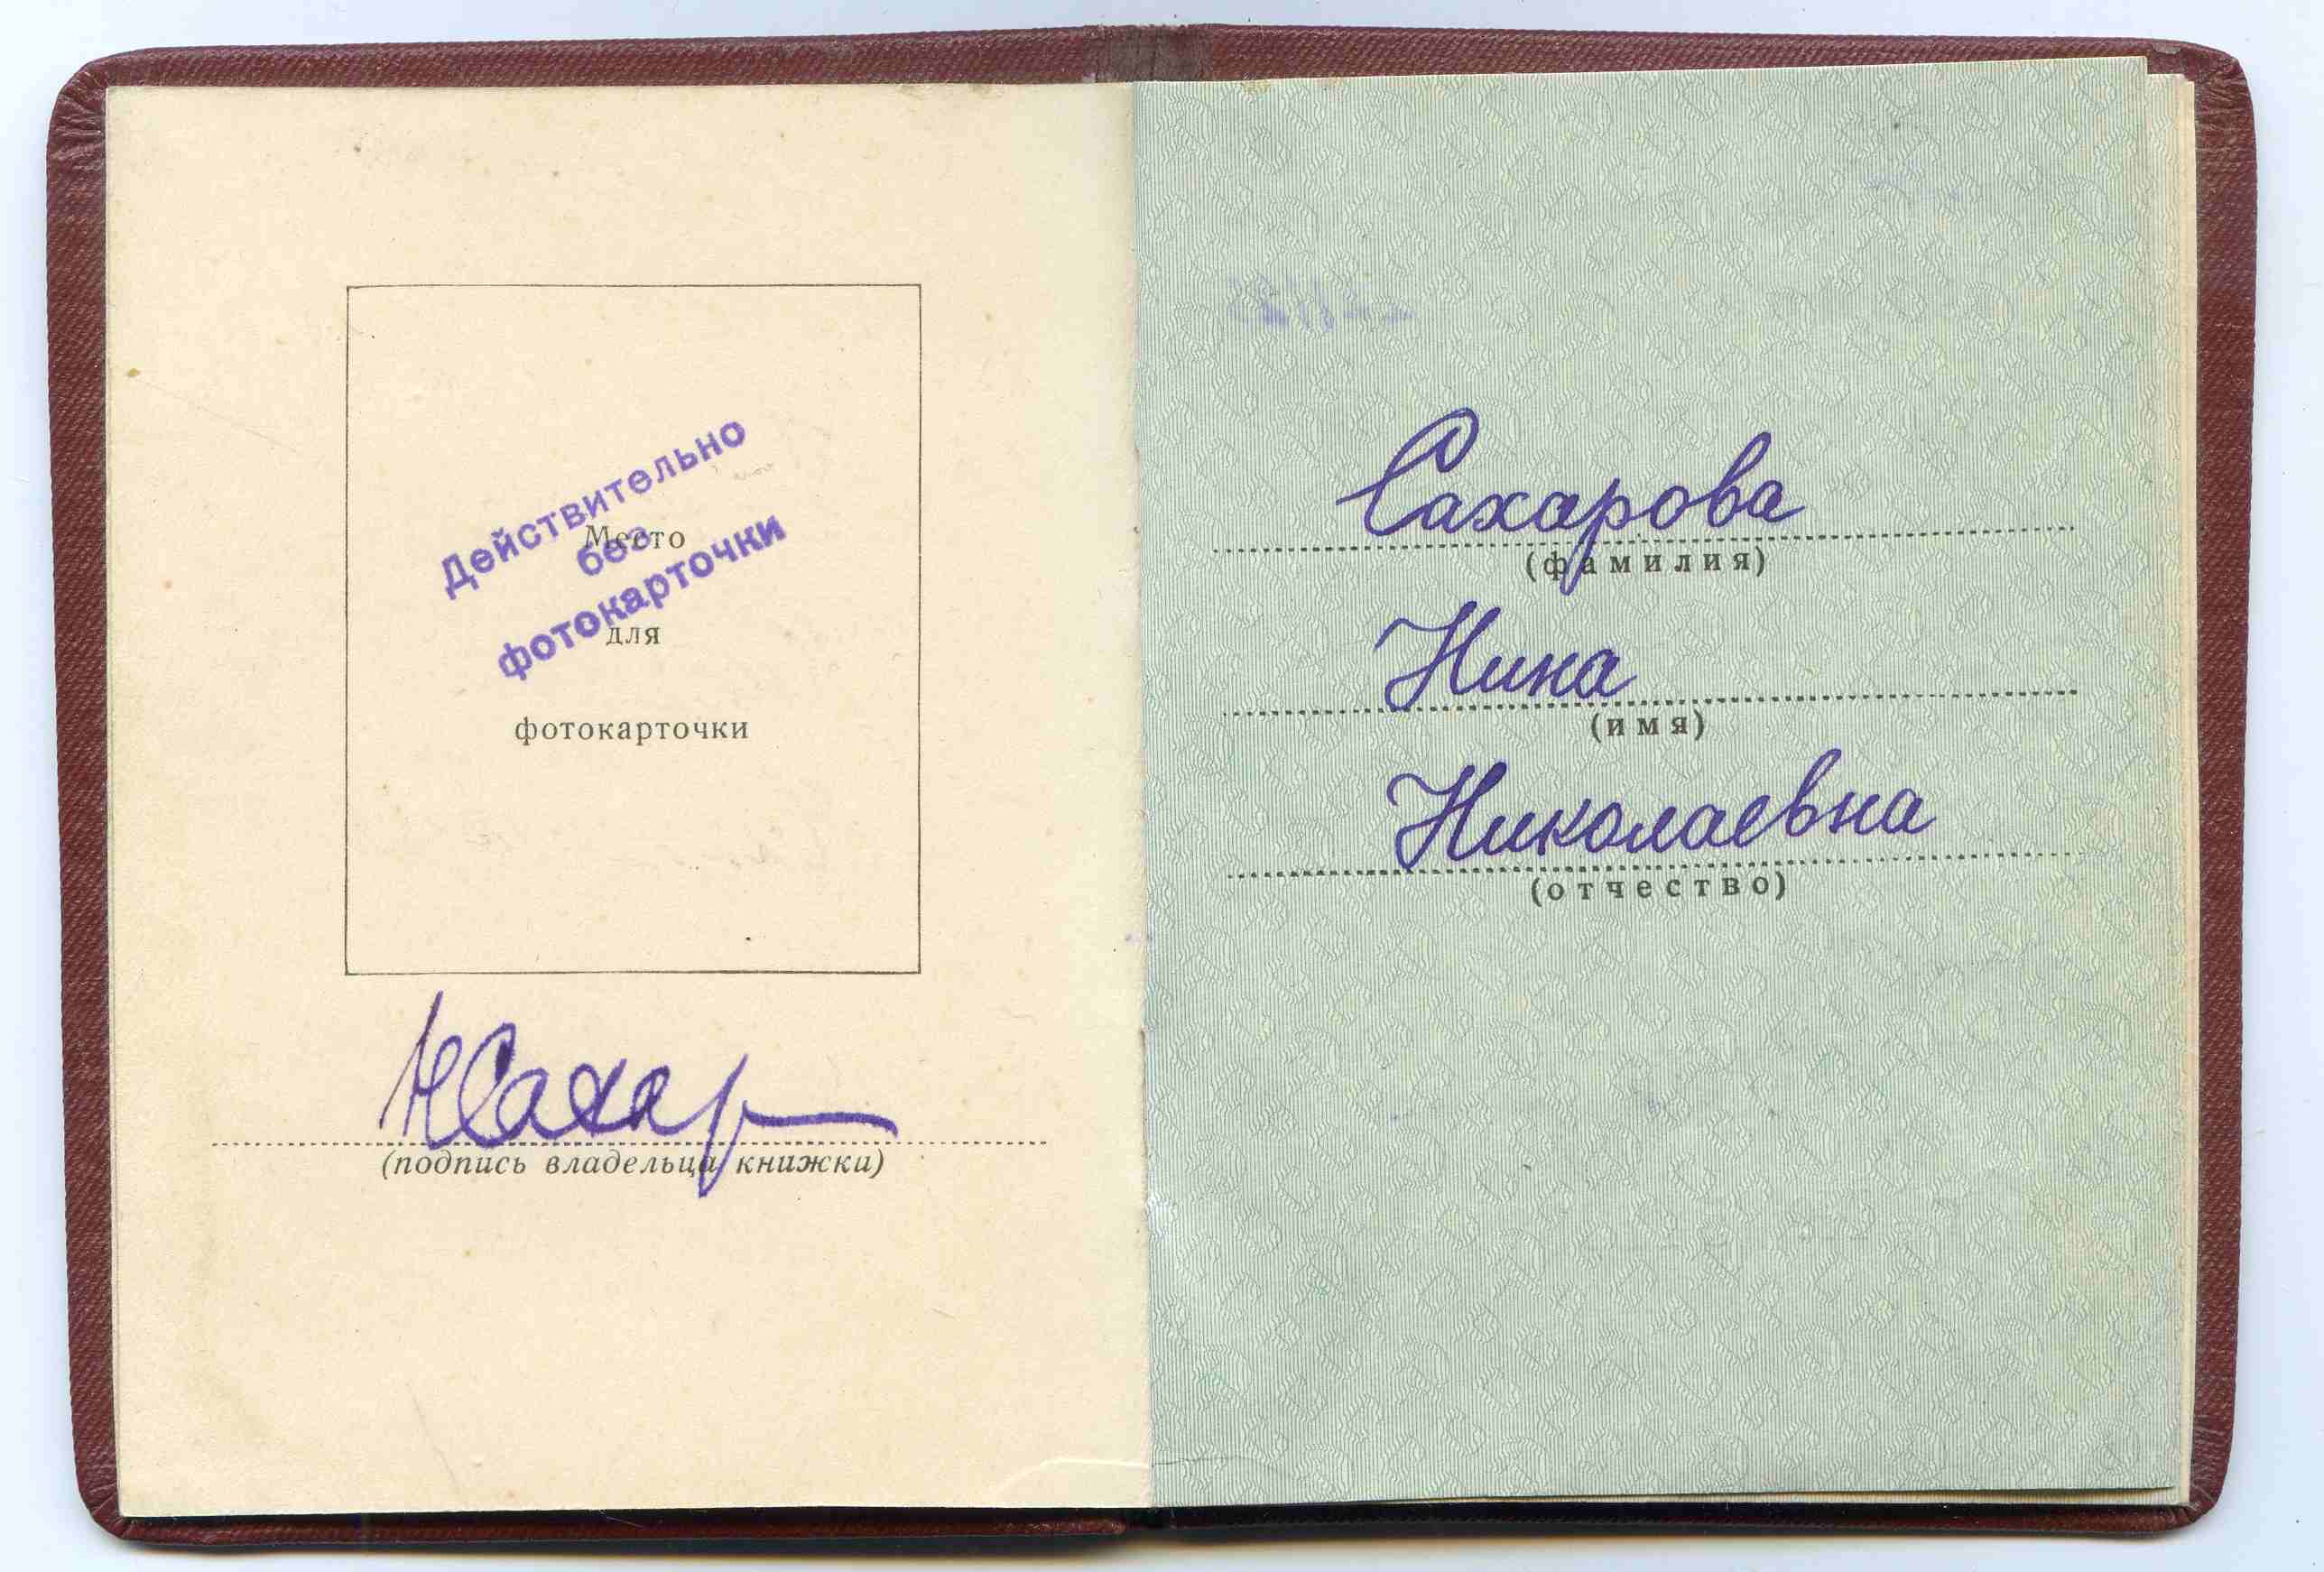 Действительно
без
фотокарточки
Место
для
фотокарточки
НСахар
(подпись владельца книжки)
Сахарова
(фамилия)
Нина
(имя)
Николаевна
(отчество)